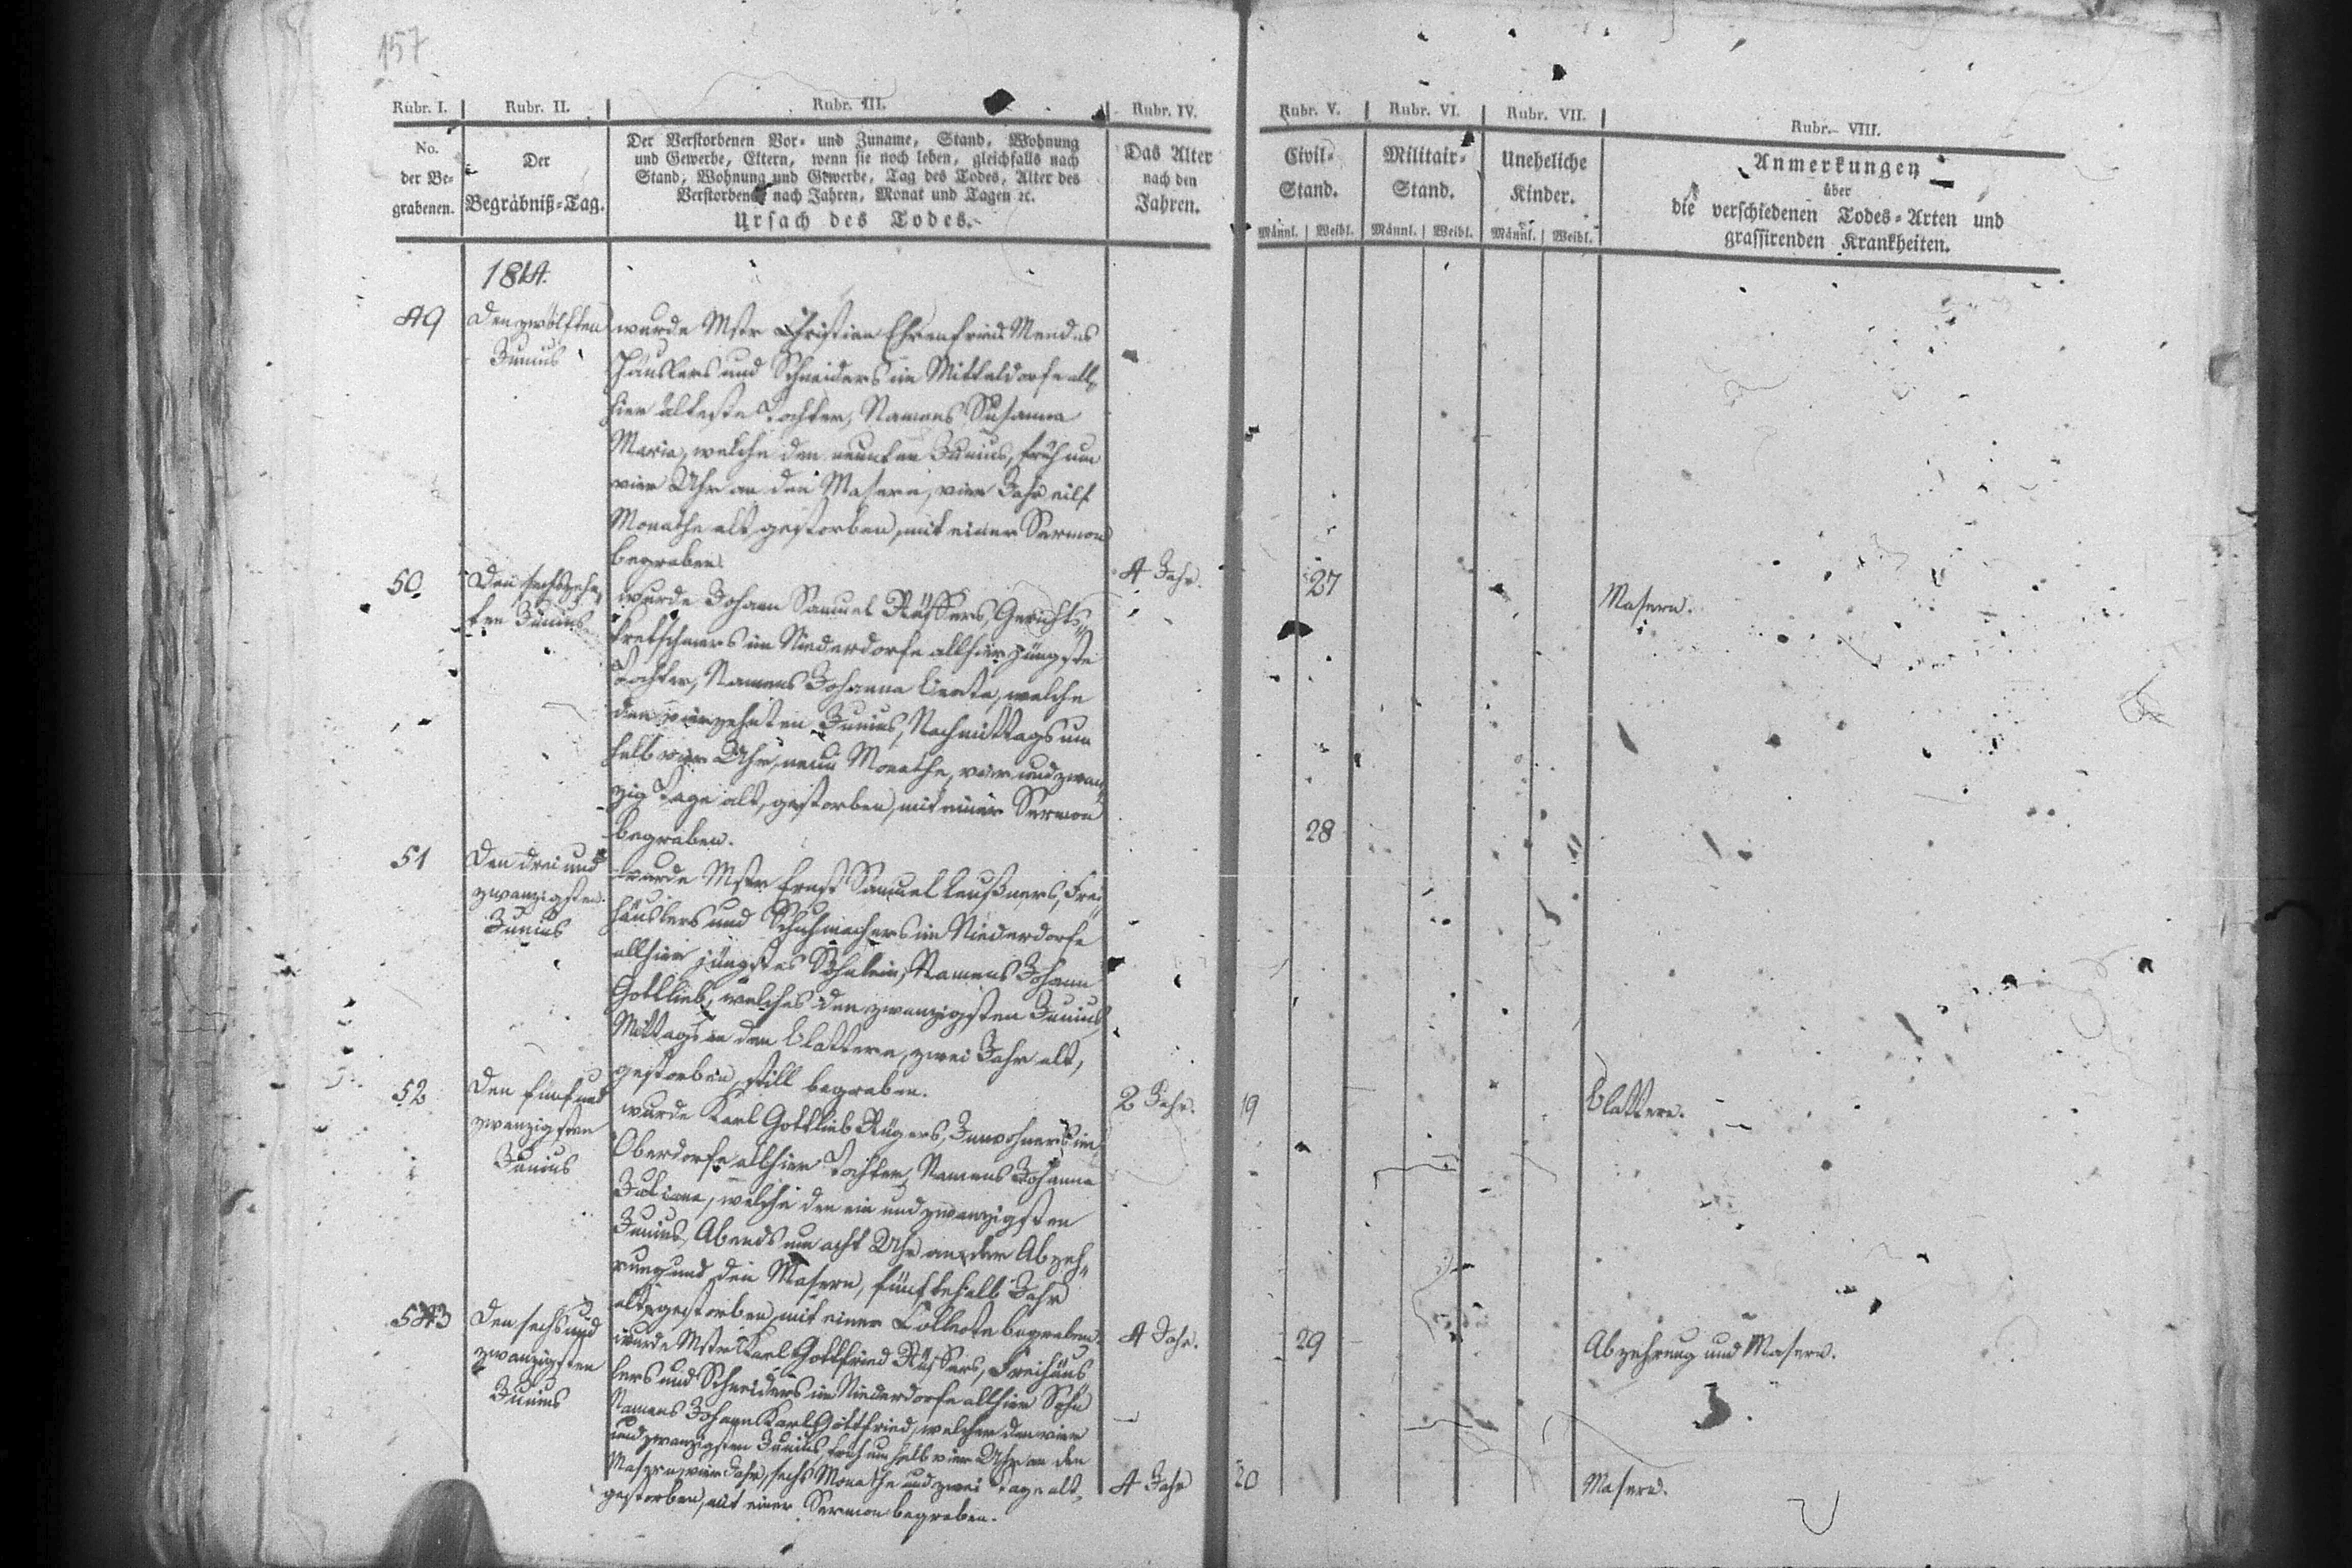 157
Rubr. I. Rubr. II. Rubr. III. Rubr. IV. Rubr. V. Rubr. VI. Rubr. VII. Rubr. VIII.
No.
der Be-
grabenen.
Der
Begräbniß-Tag.
Der Verstorbenen Vor- und Zuname, Stand, Wohnung
und Gewerbe, Eltern, wenn sie noch leben, gleichfalls nach
Stand, Wohnung und Gewerbe, Tag des Todes, Alter des
Verstorbenen nach Jahren, Monat und Tagen ꝛc.
Ursach des Todes.
Das Alter
nach den
Jahren.
Civil-
Stand.
Männl. Weibl.
Militair-
Stand.
Männl. Weibl.
Uneheliche
Kinder.
Männl. Weibl.
Anmerkungen
über
die verschiedenen Todes-Arten und
grassirenden Krankheiten.
1814.
49
Den zwölften
Junius
wurde Mstr Christian Ehrenfried Mendes
Häuslers und Schneiders im Mitteldorfe all-
hier älteste Tochter, Namens Susanna
Maria, welche den neunten Junius, früh um
vier Uhr an den Masern, vier Jahr eilf
Monathe alt gestorben, mit einer Sermon
begraben.
4 Jahr.
27
Masern.
50
Den sechszehn-
ten Junius
wurde Johann Samuel Gerichts-
kretschmers im Niederdorfe allhier jüngste
Tochter, Namens Johanna Beate, welche
den vierzehnten Junius, Nachmittags um
halb vier Uhr, neun Monathe, vier und zwan-
zig Tage alt, gestorben, mit einer Sermon
begraben.
28
51
Den drei und
zwanzigsten
Junius
wurde Mstr Ernst Samuel Leußners, Frei-
häuslers und Schuhmachers im Niederdorfe
allhier jüngstes Söhnlein, Namens Johann
Gottlieb, welches den zwanzigsten Junius
Mittags an den Blattern, zwei Jahr alt,
gestorben, still begraben.
2 Jahr.
19
Blattern.
52
Den fünf und
zwanzigsten
Junius
wurde Karl Gottlieb Rügers, Inwohners im
Oberdorfe allhier Tochter, Namens Johanna
Juliane, welche den ein und zwanzigsten
Junius, Abends um acht Uhr an der Abzeh-
rung und den Masern, fünftehalb Jahr
alt, gestorben, mit einer Collecte begraben.
4 Jahr.
29
Abzehrung und Masern.
53
Den sechs und
zwanzigsten
Junius
wurde Mstr Karl Gottfried Freihäus-
lers und Schneiders im Niederdorfe allhier Sohn
Namens Johann Karl Gottfried, welcher den vier
und zwanzigsten Junius, früh um halb vier Uhr an den
Masern, vier Jahr, sechs Monathe und zwei Tage alt,
gestorben, mit einer Sermon begraben.
4 Jahr
20
Masern.